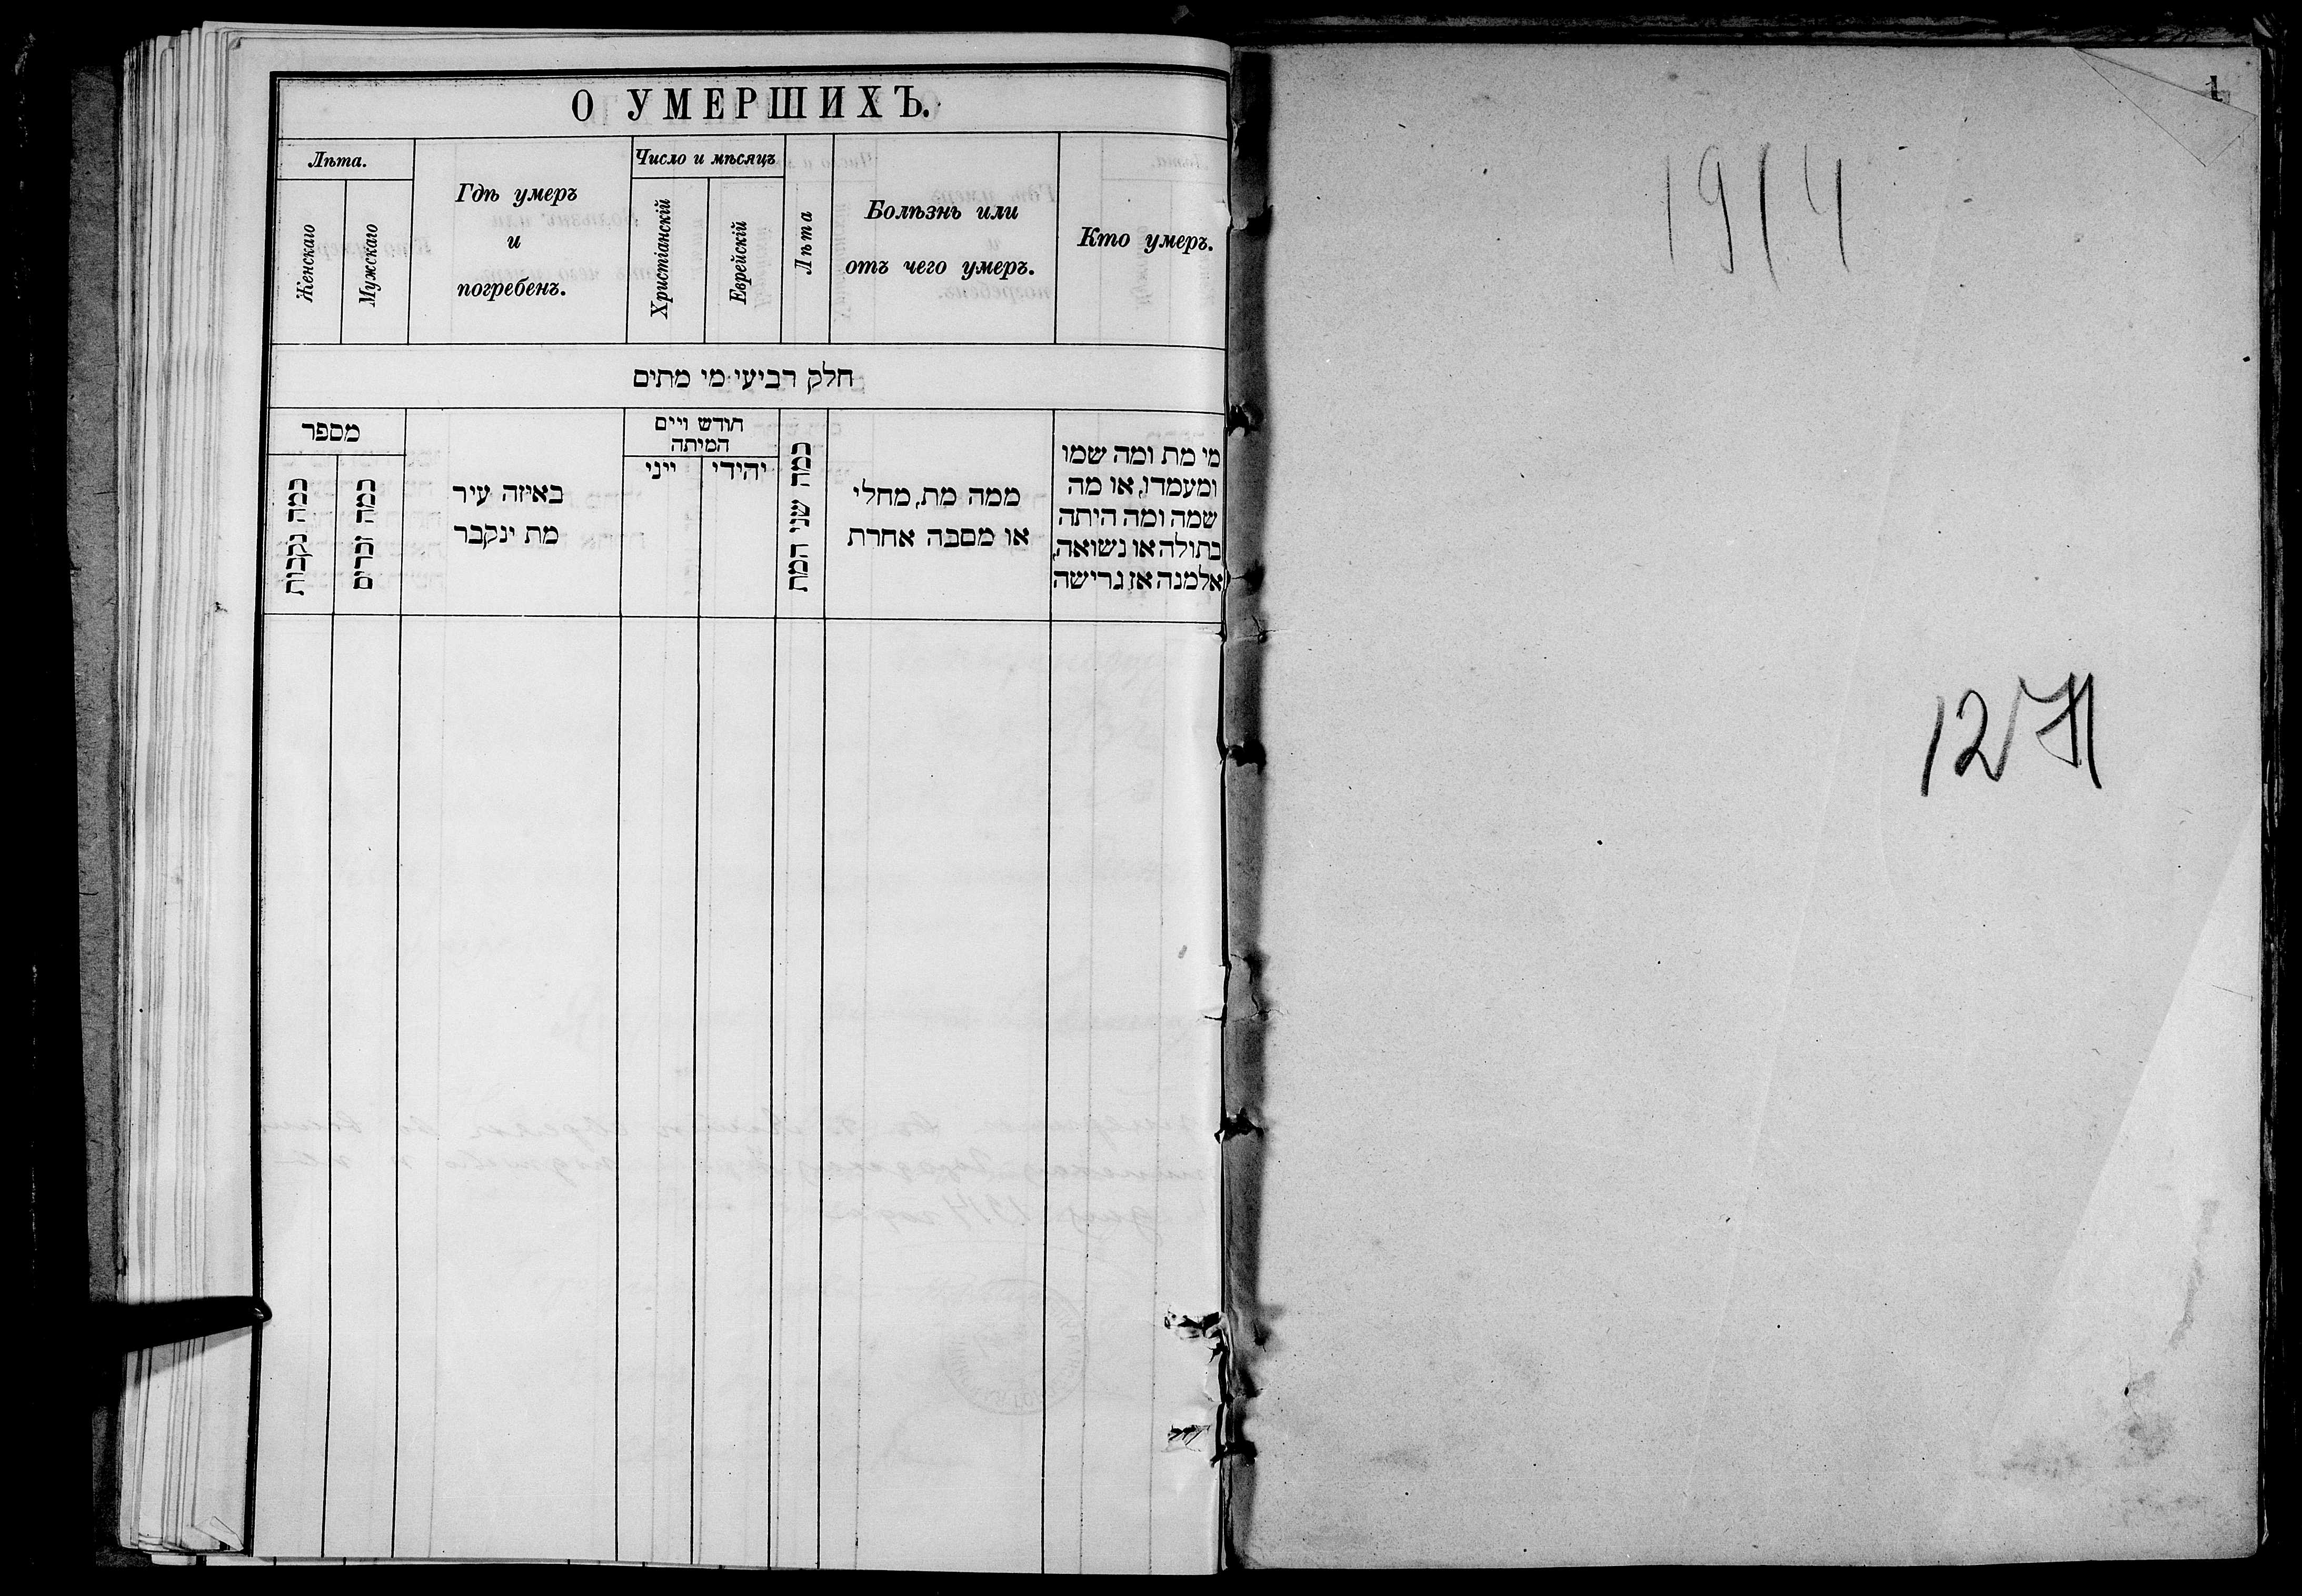 О УМЕРШИХЪ.
Лѣта.
Женскаго
Мужскаго
Гдѣ умеръ
и
погребенъ.
Число и мѣсяцъ
Христіанскій
Еврейскій
Лѣта
Болѣзнь или
отъ чего умеръ.
Кто умеръ.
חלק רביעי מי מתים
מספר
כמה נקבות
כמה זכרים
באיזה עיר
מת ינקבר
חודש ויים
המיתה
ייני
יהידי
כמה שני המת
ממה מת, מחלי
או מסבה אחרת
מי מת ומה שמו
ומעמדו, או מה
שמה ומה היתה
בתולה או נשואה,
אלמנה אז גרישה
1
1914